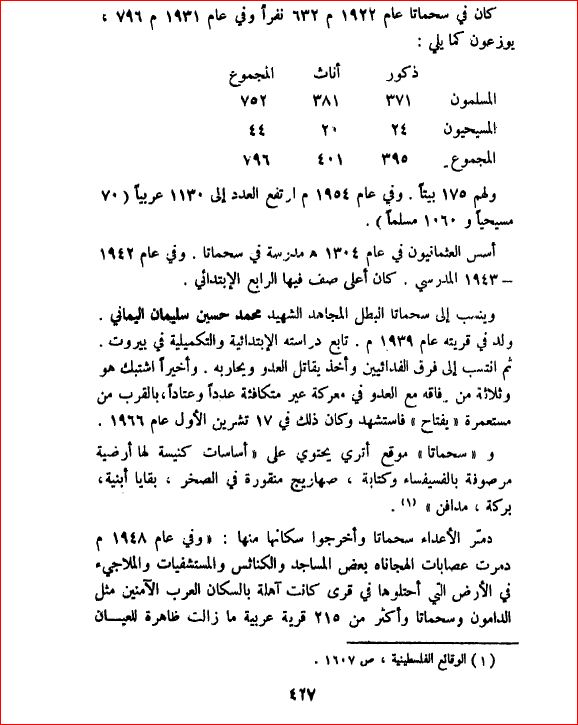 كان في سحماتا عام ١٩٢٢ م ٦٣٢ نفراً وفي عام ١٩٣١ م ٧٩٦ ،
يوزعون كما يلي :
ذكور أناث المجموع
المسلمون ٣٧١ ٣٨١ ٧٥٢
المسيحيون ٢٤ ٢٠ ٤٤
المجموع ٣٩٥ ٤٠١ ٧٩٦
ولهم ١٧٥ بيتاً . وفي عام ١٩٥٤ م ارتفع العدد إلى ١١٣٠ عربياً ( ٧٠
مسيحياً و ١٠٦٠ مسلماً ) .
أسس العثمانيون في عام ١٣٠٤ ه مدرسة في سحماتا . وفي عام ١٩٤٢
– ١٩٤٣ المدرسي . كان أعلى صف فيها الرابع الإبتدائي .
وينسب إلى سحماتا البطل المجاهد الشهيد محمد حسين سليمان اليماني .
ولد في قريته عام ١٩٣٩ م . تابع دراسته الإبتدائية والتكميلية في بيروت .
ثم انتسب إلى فرق الفدائيين وأخذ يقاتل العدو ويحاربه . وأخيراً اشتبك هو
وثلاثة من رفاقه مع العدو في معركة عير متكافئة عدداً وعتاداً،بالقرب من
مستعمرة « يفتاح » فاستشهد وكان ذلك في ١٧ تشرين الأول عام ١٩٦٦ .
و « سحماتا » موقع أثري يحتوي على « أساسات كنيسة لها أرضية
مرصوفة بالفسيفساء وكتابة ، صهاريج منقورة في الصخر ، بقايا أبنية،
بركة ، مدافن » (١) .
دمّر الأعداء سحماتا وأخرجوا سكانها منها : « وفي عام ١٩٤٨ م
دمرت عصابات الهجاناه بعض المساجد والكنائس والمستشفيات والملاجيء
في الأرض التي أحتلوها في قرى كانت آهلة بالسكان العرب الآمنين مثل
الدامون وسحماتا وأكثر من ٢١٥ قرية عربية ما زالت ظاهرة للعيــان
(١) الوقائع الفلسطينية ، ص ١٦٠٧ .
٤٢٧